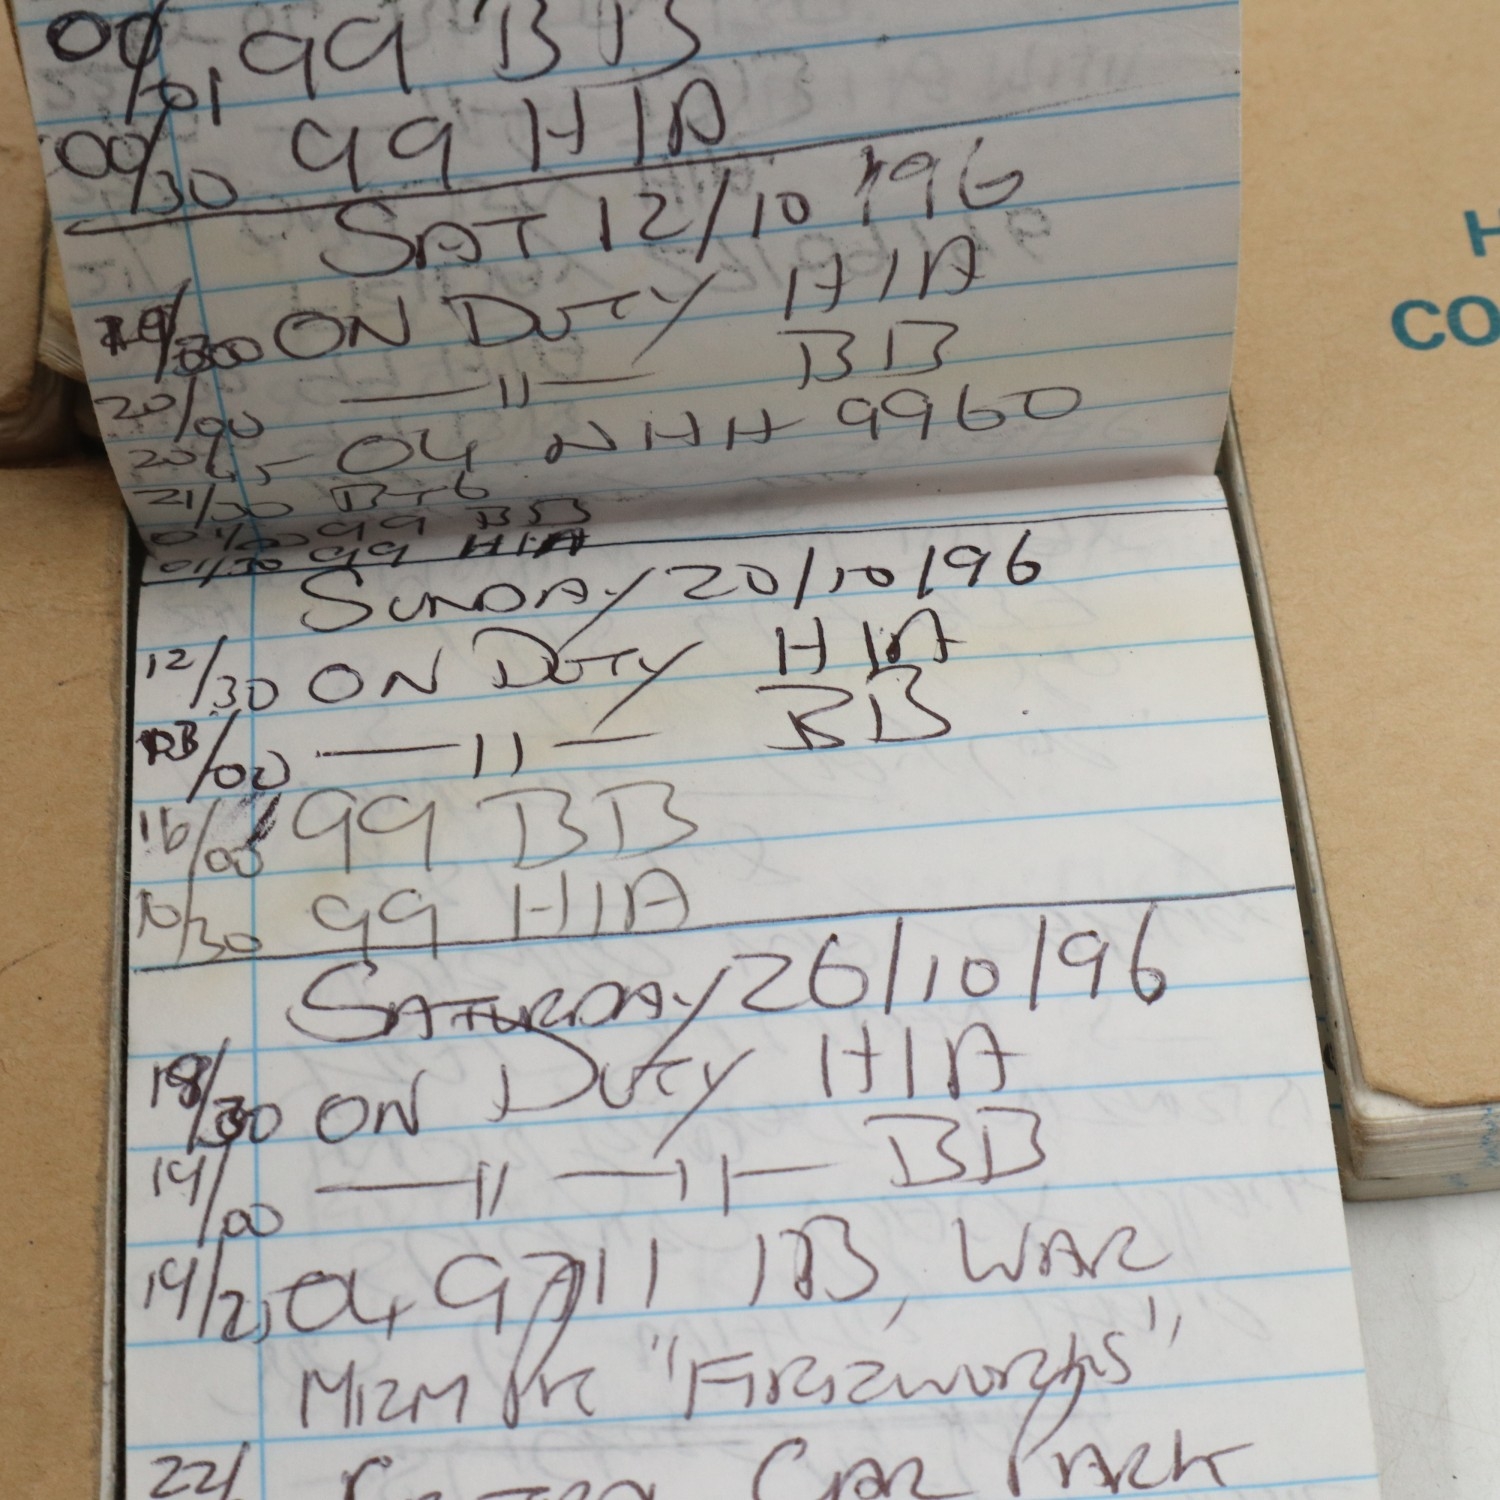 00/01 99 BB
00/30 99 HIA
SAT 12/10/96
19/30 ON DUTY HIA
20/00 —11— BB
20/45 04 NHH 9960
21/30 B+6
01/00 99 BB
01/30 99 HIA
SUNDAY 20/10/96
12/30 ON DUTY HIA
13/00 —11— BB
16/00 99 BB
16/30 99 HIA
SATURDAY 26/10/96
18/30 ON DUTY HIA
19/00 —11— —11— BB
19/2 04 9711 1B, WAR
MEM PK "FIREWORKS"
22/ CAR PARK
H
CO